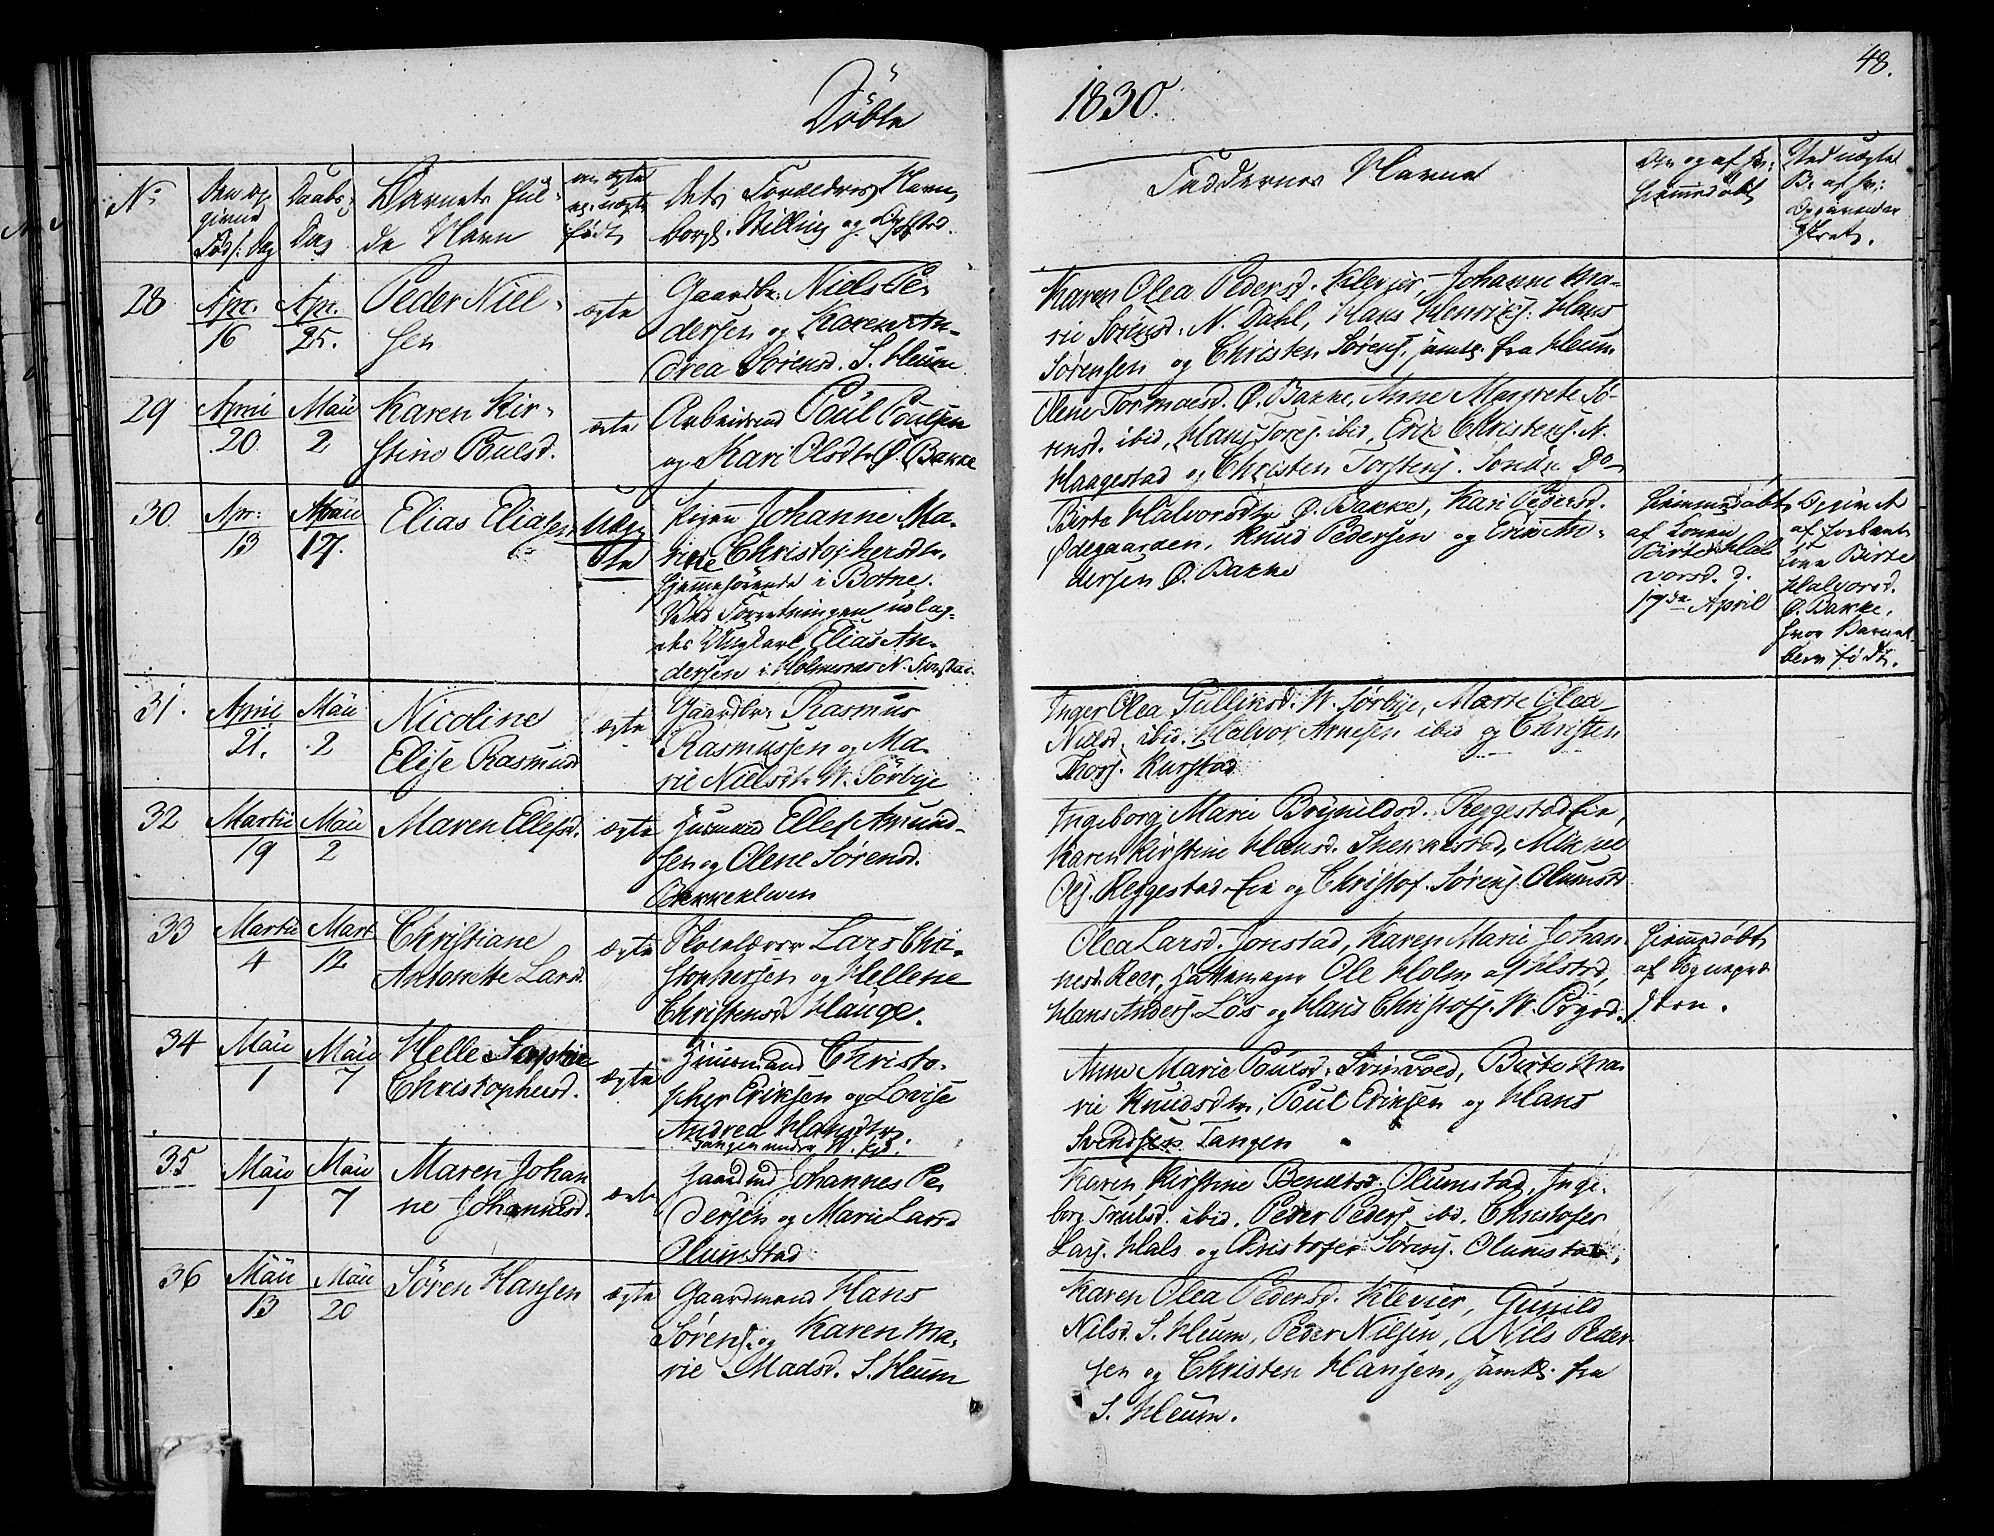 48.
Döbte
1830.
No
Den op
givne
Föds: Dag
Daabs
Dag
Barnets ful-
de Navn
om ægte
el: uægte
födt
Dets Forældres Navn,
Borgl. Stilling og Opholds.
Faddernes Navne
Om og af hv:
hjemmedöbt
Ved uægte
B: af hv:
28
Apr.
16
Apr.
25.
Peder Niel-
sen
ægte
Gaardbr: Niels Pe-
dersen og Karen An-
drea Sörensd. S. Heum
Karen Olea Pedersd. Klevjer Johanne Ma-
rie Sörensd. N. Dahl, Hans Henriks. Hans
Sörensen og Christen Sörens. samtl. fra Heum
29
April
20
Maii
2
Karen Kir-
stine Poulsd.
ægte
Arbeidsmd Poul Poulsen
og Kari Olsdtr Ø. Bakke
Olene Tormoesd. Ø. Bakke, Anne Margrete Sö-
rensd. ibid, Hans Tores. ibid, Erik Christens. N.
Haagestad og Christen Torstens. Söndre Do-
30
Apr:
13
Maii
17.
Elias Eliasen
Uæg-
te
Pigen Johanne Ma-
rie Christophersdtr
hjemmehörende i Botne.
Ved Forretningen udlag-
des Ungkarl Elias An-
dersen i Holmsnæs N.
Birte Halvorsdtr Ø. Bakke, Kari Pedersd.
Ødegaarden, Knud Pedersen og Erik An-
dersen Ø. Bakke
Hjemmedöbt
af Konen
Birte Hal-
vorsd. d.
17de April
af
Kone Birte
Halvorsd.
Ø. Bakke,
hvor Barnet
blev födt.
31.
April
21.
Maii
2
Nicoline
Elise Rasmusd
ægte
Gaardbr: Rasmus
Rasmussen og Ma-
rie Nielsdtr W. Sörbye
Inger Olea Gulliksd. W. Sörbye, Marie Olea
Nielsd. ibid. Halvor Arnesen ibid og Christen
Thors. Kurstad
32
Martii
19
Maii
2
Maren Ellefsd.
ægte
Huusmand Ellef Amund-
sen og Olene Sörensd.
Ingeborg Marie Brynildsd. Reggestad Eie,
Karen Kirstine Hansd. Skekkestad, Mikkel
Ols. Reggestad Eie og Christof. Sörens. Olumstd
33
Martii
4
Mart
12
Christiane
Antonette Larsd
ægte
Skolelærer Lars Chri-
stophersen og Hellene
Christensd Hauge.
Olea Larsd. Jonstad, Karen Marie Johan-
nesd. Reer, Hattemager Ole Holm af Hlstad,
Hans Anders. Lös og Hans Christofs. W. Rögrd.
Hjemmedöbt
af Sognepræ
sten.
34
Maii
1
Maii
7
Helle Sophie
Christophersd.
ægte
Huusmand Christo-
pher Eriksen og Lovise
Andrea Hansdtr.
Tangen under W. Eie.
Anne Marie Poulsd. Svinvold, Birte Ma-
rie Knudsdtr, Poul Eriksen og Hans
Svendsen Tangen
35
Maii
1
Maii
7
Maren Johan
ne Johannesd.
ægte
Gaardmd Johannes Pe-
dersen og Marie Larsd
Olumstad
Karen Kirstine Bendtsd. Olumstad, Inge-
borg Truulsd. ibid. Peder Peders ibid. Christofer
Lars. Hals og Christofer Sörens. Olumstad,
36
Maii
13
Maii
20
Sören Hansen
ægte
Gaardmand Hans
Sörens. og Karen Ma-
rie Madsd. S. Heum
Karen Olea Pedersd. Klevjer, Gunild
Nilsd. S. Heum, Peder Nilsen, Nils Peder
sen og Christen Hansen, samtl. fra
S. Heum.